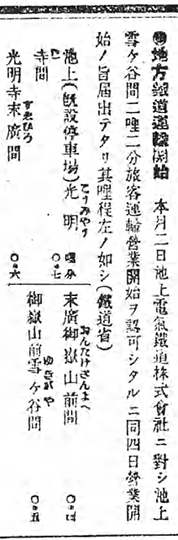 ●地方鐵道運輸開始 本月二日池上電氣鐵道株式會社ニ對シ池上
雪ケ谷間二哩二分旅客運輸營業開始ヲ認可シタルニ同四日營業開
始ノ旨屆出テタリ其哩程左ノ如シ(鐵道省)
哩分
池上(既設停車場)光明寺間 〇・七
こうみやうじ
末廣御嶽山前間 〇・四
おんたけさんまへ
光明寺末廣間 〇・六
すゑひろ
御嶽山前雪ケ谷間 〇・五
ゆきがや